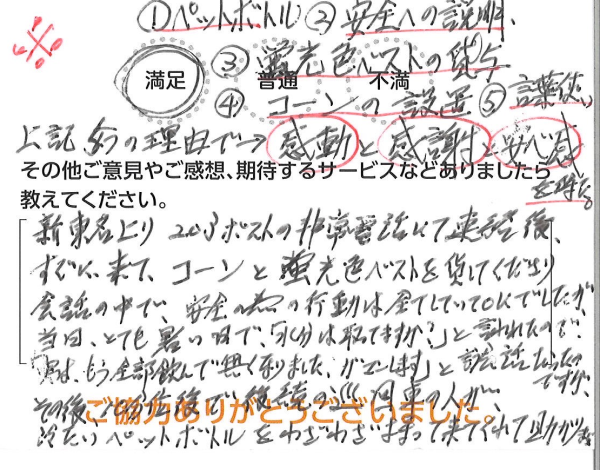 ①ペットボトル ②安全への説明、
③蛍光色ベストの貸与
満足 普通 不満
④コーンの設置 ⑤言葉使い
上記5つの理由で→感動と感謝と安心感
その他ご意見やご感想、期待するサービスなどありましたら
教えてください。
新東名上り 203ポストの非常電話にて連絡後、
すぐに来て、コーンと蛍光色ベストを貸してくださり
会話の中で、安全の為の行動は全てしていてOKでしたが、
当日、とても暑い日で、「水分は取れてますか?」と言われたので、
実は、もう全部飲んで無くなりました、ガマンします」と
ですが、
その後、後で後続の巡回車の人が、
ご協力ありがとうございました。
冷たいペットボトルをわざわざ持って来てくれて助かり